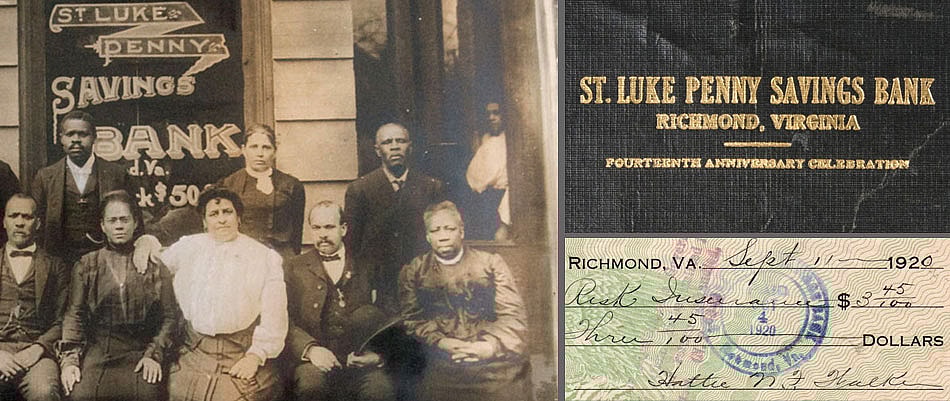 ST. LUKE
PENNY
SAVINGS
BANK
d, Va.
k $50
ST. LUKE PENNY SAVINGS BANK
RICHMOND, VIRGINIA
FOURTEENTH ANNIVERSARY CELEBRATION
RICHMOND, VA. Sept 11 1920
Risk Insurance $3 45/100
Three 45/100 DOLLARS
1920
Hattie N. F. Walker